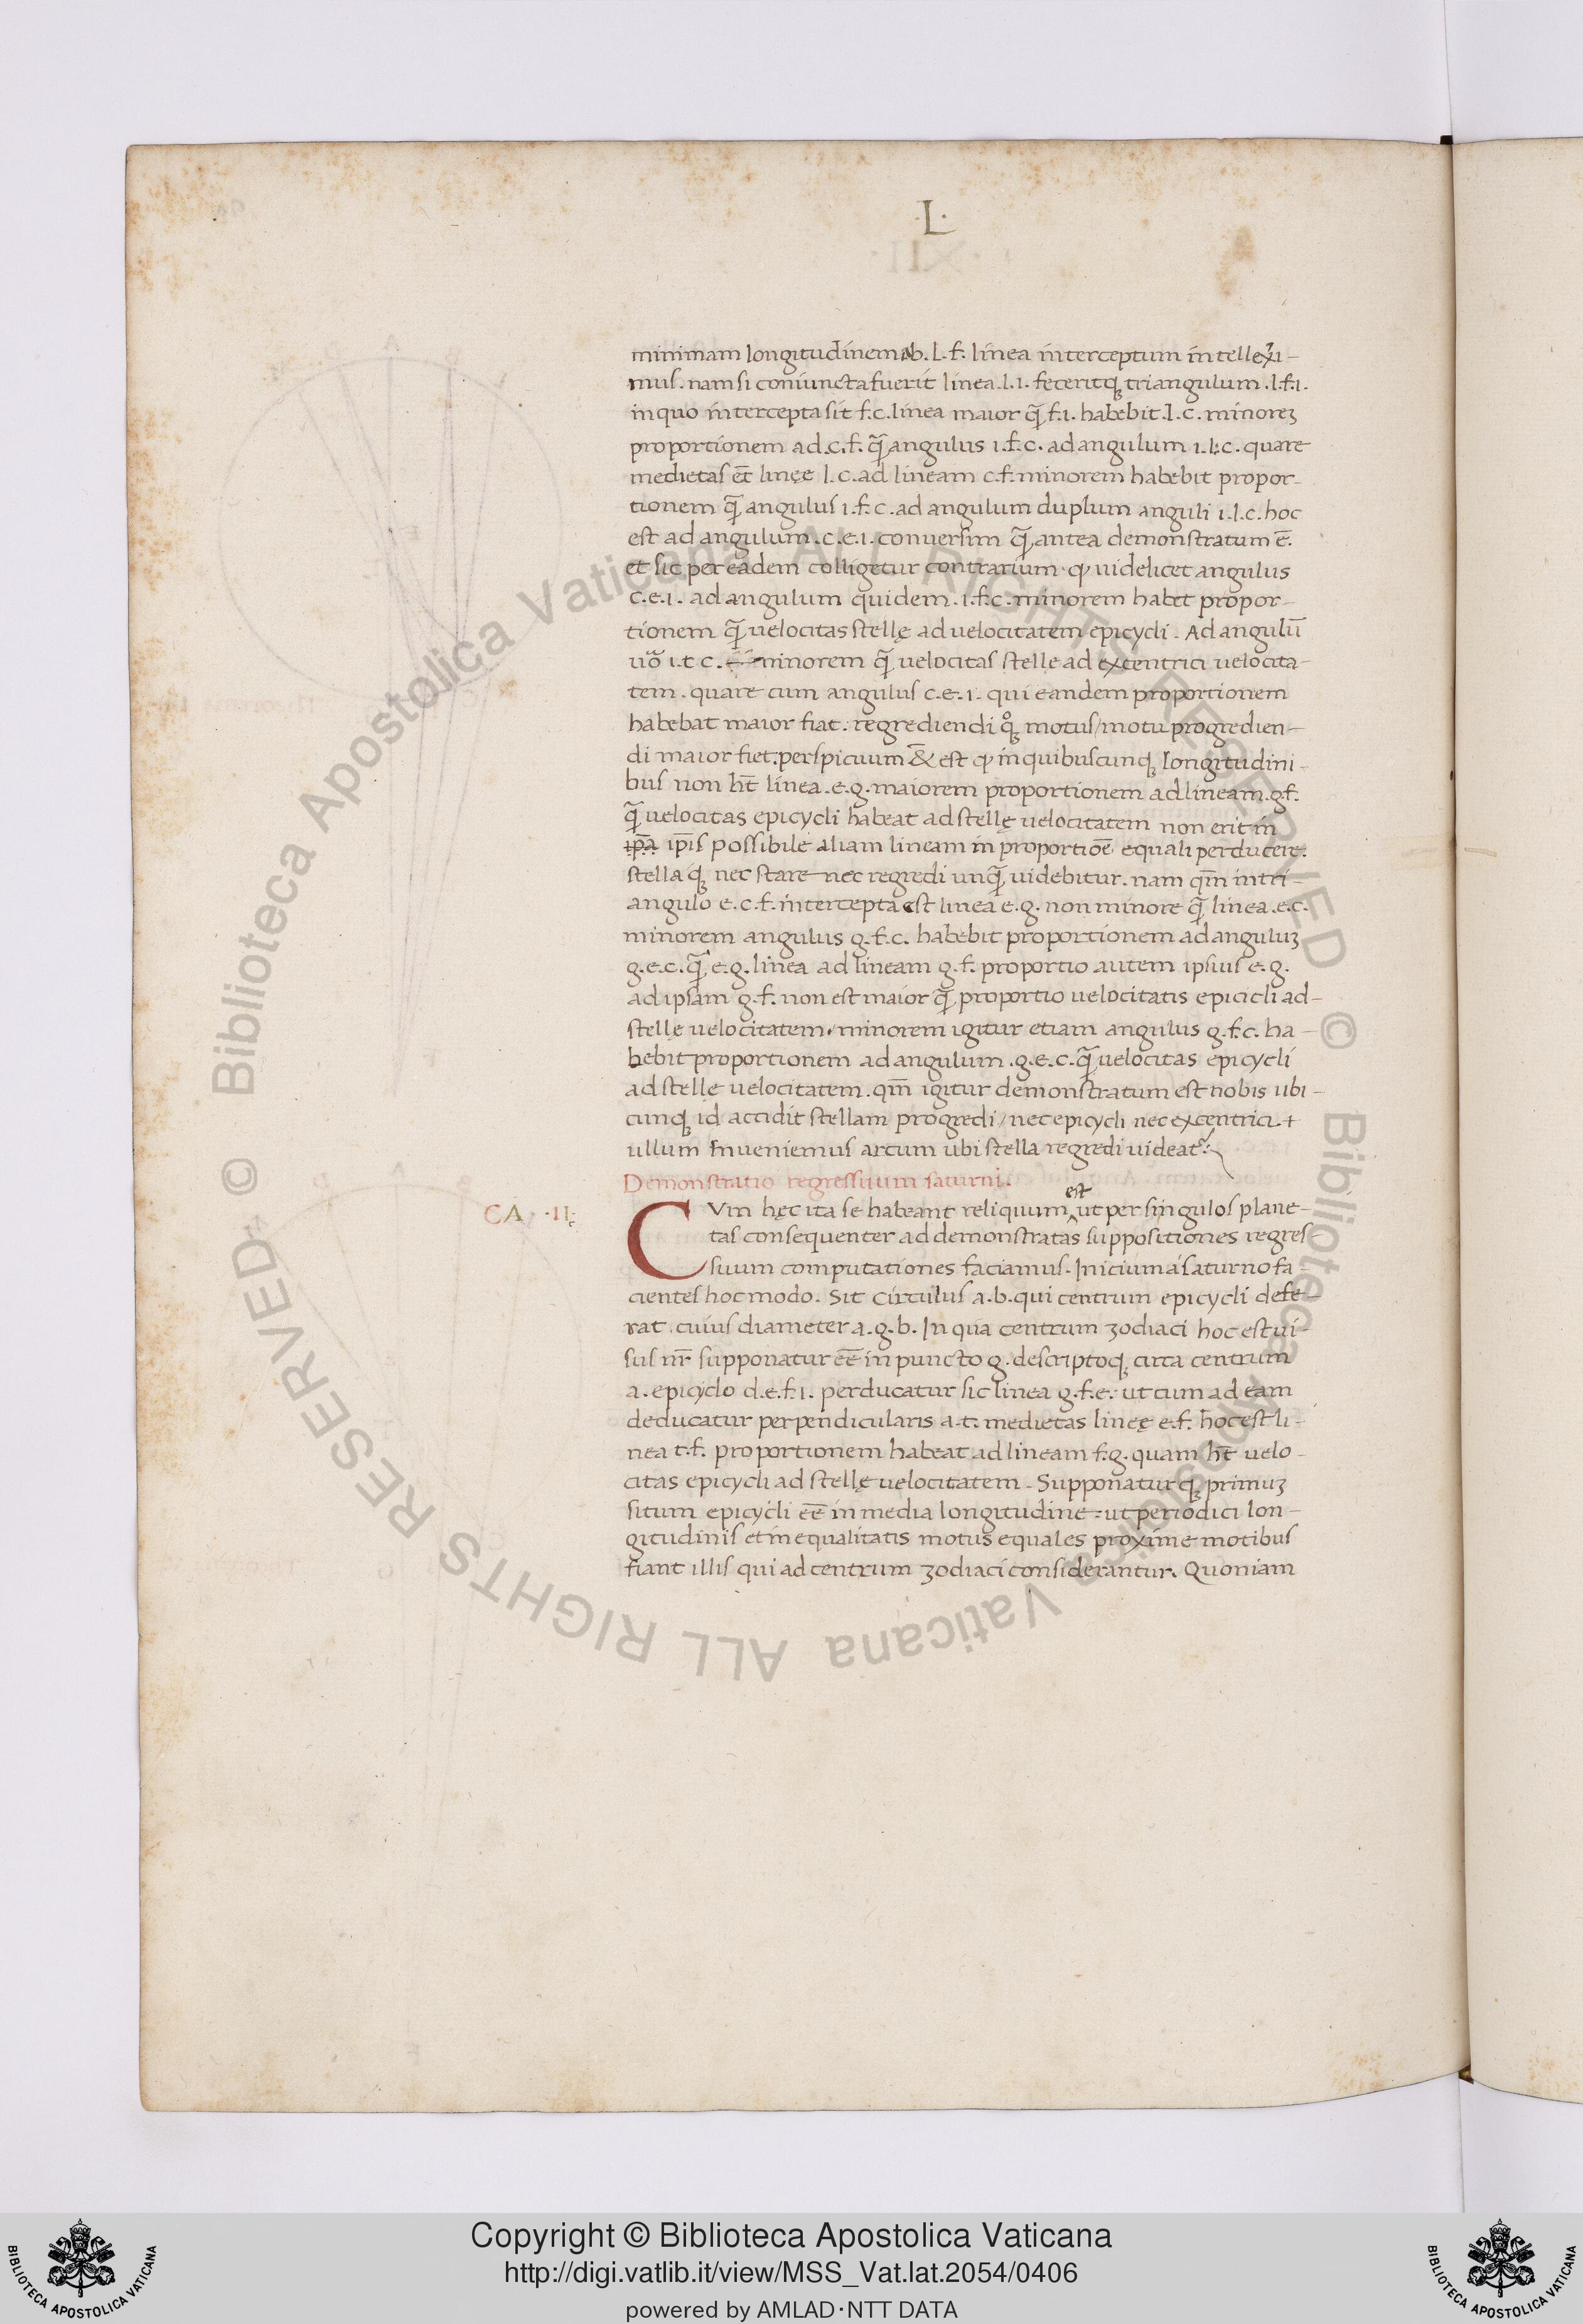 ·L·
minimam longitudinem ab. l. f. linea interceptum intellexi-
mus. nam si coniuncta fuerit linea. l. i. feceritqꝫ triangulum. l. f. i.
in quo intercepta sit f. c. linea maior qᷓ f. i. habebit. l. c. minoreꝫ
proportionem ad. c. f. qᷓ angulus i. f. c. ad angulum i. l. c. quare
medietas et̄ linęe l. c. ad lineam c. f. minorem habebit propor-
tionem qᷓ angulus i. f. c. ad angulum duplum anguli i. l. c. hoc
est ad angulum. c. e. i. conuersim qᷓ antea demonstratum ē.
et sic per eadem colligetur contrarium. ꝙ uidelicet angulus
c. e. i. ad angulum quidem. i. f. c. minorem habet propor-
tionem qᷓ uelocitas stellę ad uelocitatem epicycli. Ad angulū
uo᷑ i. t c. minorem qᷓ uelocitas stelle ad excentrici uelocita-
tem. quare cum angulus c. e. i. qui eandem proportionem
habebat maior fiat. regrediendi qͦꝫ motus / motu progredien-
di maior fiet. perspicuum & est ꝙ in quibuscunqꝫ longitudini-
bus non ht̄ linea. e. g. maiorem proportionem ad lineam. g. f.
qᷓ uelocitas epicycli habeat ad stellę uelocitatem non erit in
ip̄a ip̄is possibile aliam lineam in proportiōe equali perducere.
stella qꝫ nec stare nec regredi unqᷓ uidebitur. nam qm̄ in tri-
angulo e. c. f. intercepta est linea e. g. non minore qᷓ linea. e. c.
minorem angulus g. f. c. habebit proportionem ad anguluꝫ
g. e. c. qᷓ e. g. linea ad lineam g. f. proportio autem ipsius e. g.
ad ipsam g. f. non est maior qᷓ proportio uelocitatis epicicli ad-
stellę uelocitatem. minorem igitur etiam angulus g. f. c. ha-
bebit proportionem ad angulum. g. e. c. qᷓ uelocitas epicycli
ad stellę uelocitatem. qm̄ igitur demonstratum est nobis ubi-
cunqꝫ id accidit stellam progredi / nec epicycli nec excentrici +
ullum inueniemus arcum ubi stella regredi uideat᷑.
Demonstratio regressuum saturni.
CA ·II·
CVm hęc ita se habeant reliquum est ut per singulos plane-
tas consequenter ad demonstratas suppositiones regres-
suum computationes faciamus. Inicium a saturno fa-
cientes hoc modo. Sit circulus a. b. qui centrum epicycli defe-
rat. cuius diameter a. g. b. In qua centrum zodiaci hoc est ui-
sus nr̄ supponatur eē in puncto g. descriptoqꝫ circa centrum
a. epicyclo d. e. f. i. perducatur sic linea g. f. e. ut cum ad eam
deducatur perpendicularis a. t. medietas linęę e. f. hoc est li-
nea t. f. proportionem habeat ad lineam f. g. quam ht̄ uelo-
citas epicycli ad stellę uelocitatem. Supponatur qꝫ primuꝫ
situm epicycli eē in media longitudine. ut periodici lon-
gitudinis et inequalitatis motus equales proxime motibus
fiant illis qui ad centrum zodiaci considerantur. Quoniam
© Biblioteca Apostolica Vaticana ALL RIGHTS RESERVED © Biblioteca Apostolica Vaticana ALL RIGHTS RESERVED
Copyright © Biblioteca Apostolica Vaticana
http://digi.vatlib.it/view/MSS_Vat.lat.2054/0406
powered by AMLAD·NTT DATA
BIBLIOTECA APOSTOLICA VATICANA
BIBLIOTECA APOSTOLICA VATICANA